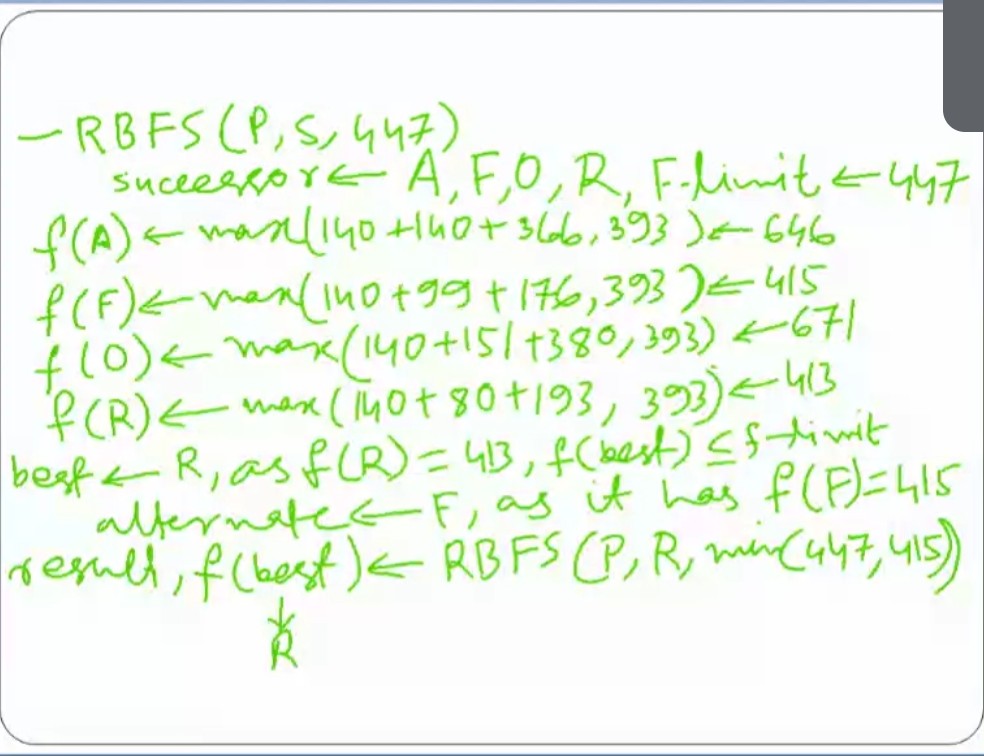 — RBFS(P, S, 447)
successor ← A, F, O, R, F-limit ← 447
f(A) ← max(140+140+366, 393) ← 646
f(F) ← max(140+99+176, 393) ← 415
f(O) ← max(140+151+380, 393) ← 671
f(R) ← max(140+80+193, 393) ← 413
best ← R, as f(R) = 413, f(best) ≤ f-limit
alternate ← F, as it has f(F)=415
result, f(best) ← RBFS(P, R, min(447, 415))
↓
R